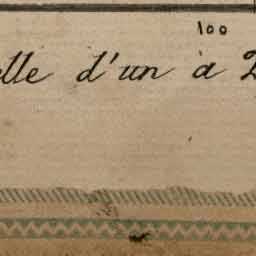 100
elle d'un à